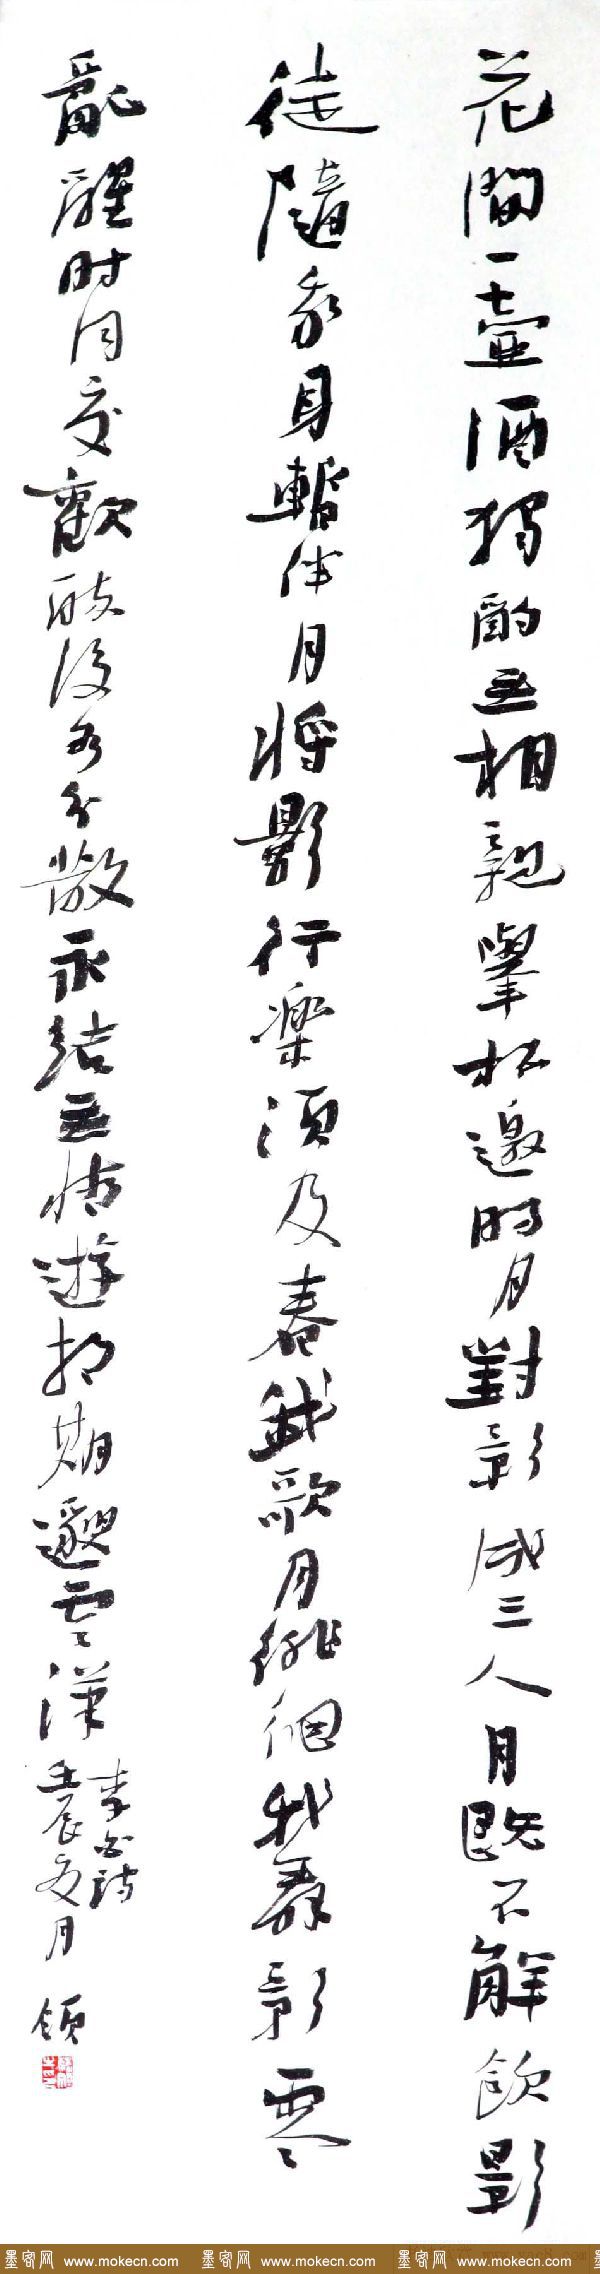 花間一壺酒獨酌無相親舉杯邀明月對影成三人月既不解飲影
徒隨我身暫伴月將影行樂須及春我歌月徘徊我舞影零
亂醒时同交歡醉後各分散永結無情遊相期邈雲漢
李白詩
壬辰夏月
墨客网 www.mokecn.com 墨客网 www.mokecn.com 墨客网 www.mokecn.com